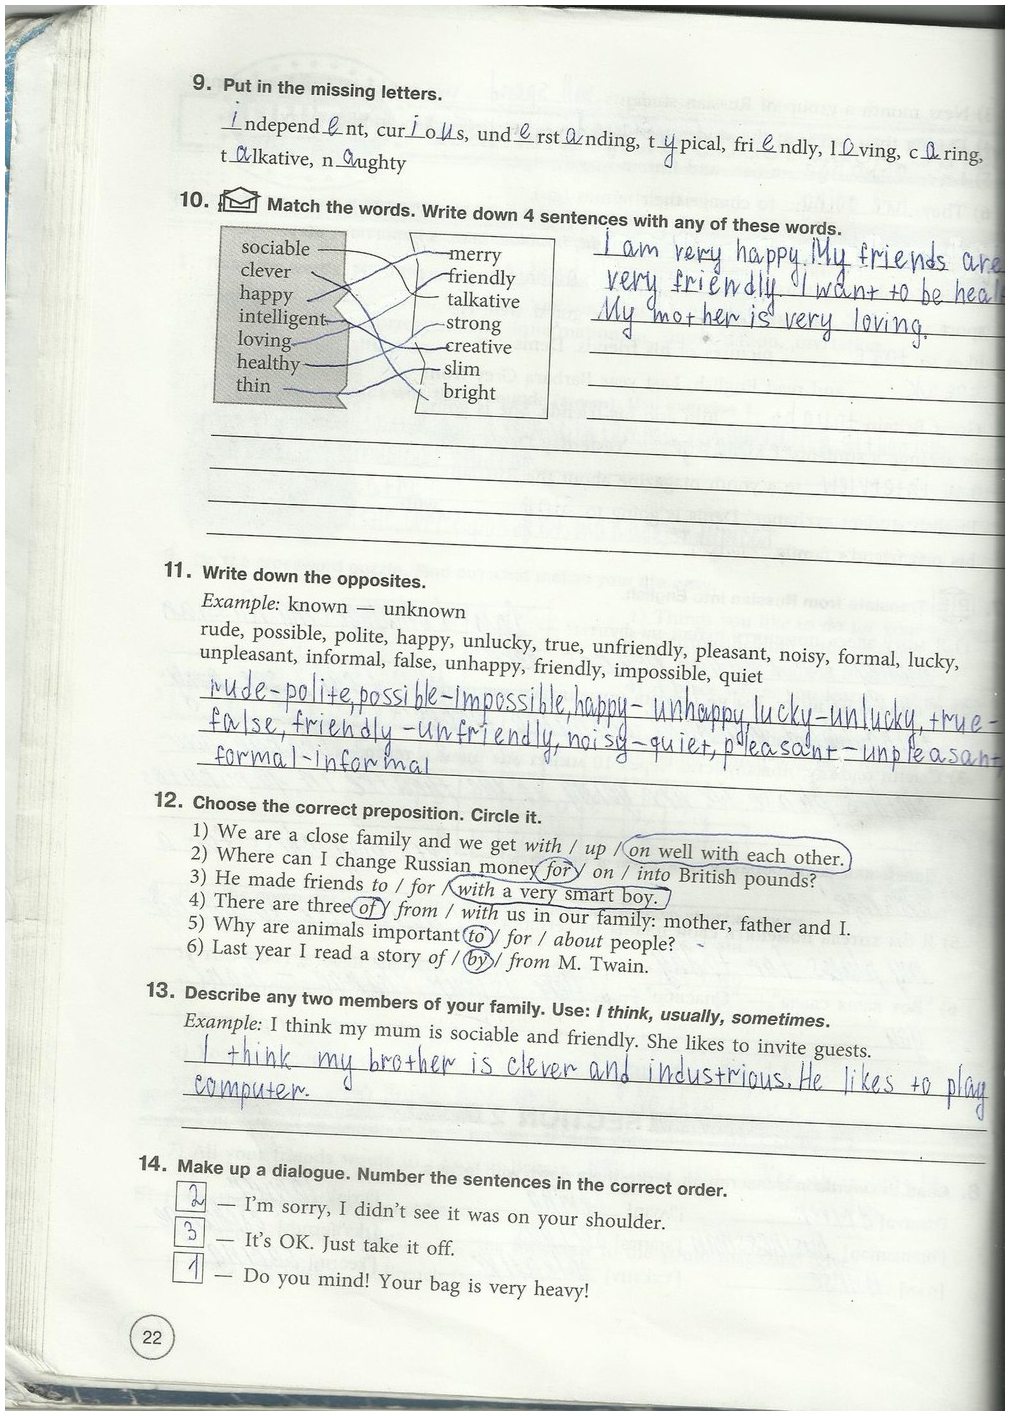 9. Put in the missing letters.
independent, curious, understanding, typical, friendly, loving, caring,
talkative, naughty
10. Match the words. Write down 4 sentences with any of these words.
sociable
clever
happy
intelligent
loving
healthy
thin
merry
friendly
talkative
strong
creative
slim
bright
I am very happy. My friends are
very friendly. I want to be heal
My mother is very loving.
11. Write down the opposites.
Example: known — unknown
rude, possible, polite, happy, unlucky, true, unfriendly, pleasant, noisy, formal, lucky,
unpleasant, informal, false, unhappy, friendly, impossible, quiet
rude-polite, possible-impossible, happy-unhappy, lucky-unlucky, true-
false, friendly-unfriendly, noisy-quiet, pleasant-unpleasant,
formal-informal
12. Choose the correct preposition. Circle it.
1) We are a close family and we get with / up / on well with each other.
2) Where can I change Russian money for / on / into British pounds?
3) He made friends to / for / with a very smart boy.
4) There are three of / from / with us in our family: mother, father and I.
5) Why are animals important to / for / about people?
6) Last year I read a story of / by / from M. Twain.
13. Describe any two members of your family. Use: I think, usually, sometimes.
Example: I think my mum is sociable and friendly. She likes to invite guests.
I think my brother is clever and industrious. He likes to play
computer.
14. Make up a dialogue. Number the sentences in the correct order.
2 — I'm sorry, I didn't see it was on your shoulder.
3 — It's OK. Just take it off.
1 — Do you mind! Your bag is very heavy!
22